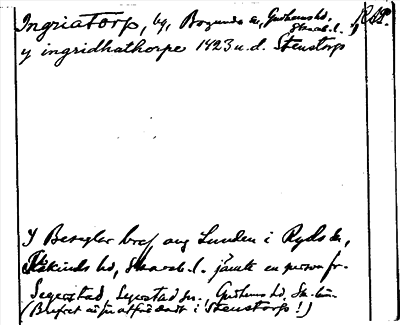 Ingriatorp, by, Borgunda sn, Gudhems hd, RAP.
Skarab. l.
y ingridhathorpe 1423 u.d. Stenstorp
Y Beseglar bref ang Lunden i Ryds sn,
Kåkinds hd, Skarab. l. jämte en person fr.
Segerstad, Segerstad sn., Gudhems hd, Sk. län.
(Brefvet är utfärdadt i Stenstorp!)